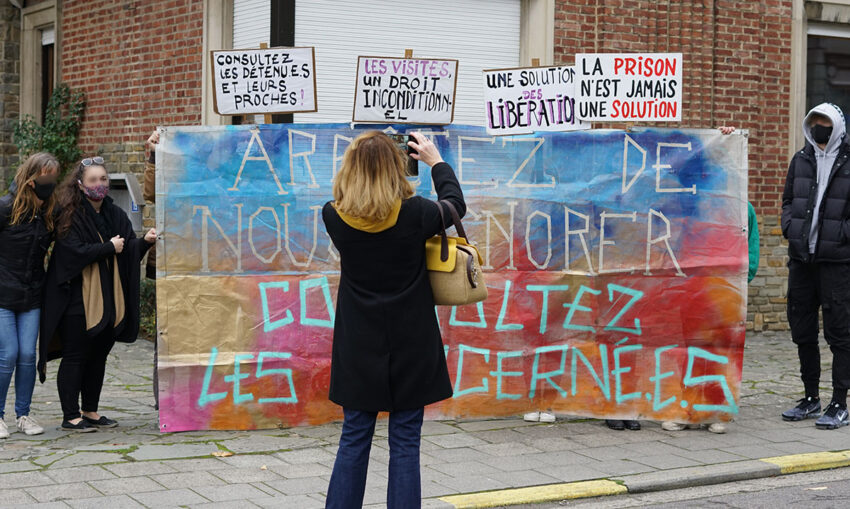 CONSULTEZ
LES DÉTENU.E.S
ET LEURS
PROCHES!
LES VISITES,
UN DROIT
INCONDITIONN-
EL
UNE SOLUTION
DES
LIBÉRATION
LA PRISON
N'EST JAMAIS
UNE SOLUTION
ARRÊTEZ DE
NOUS IGNORER
CONSULTEZ
LES CONCERNÉ.E.S